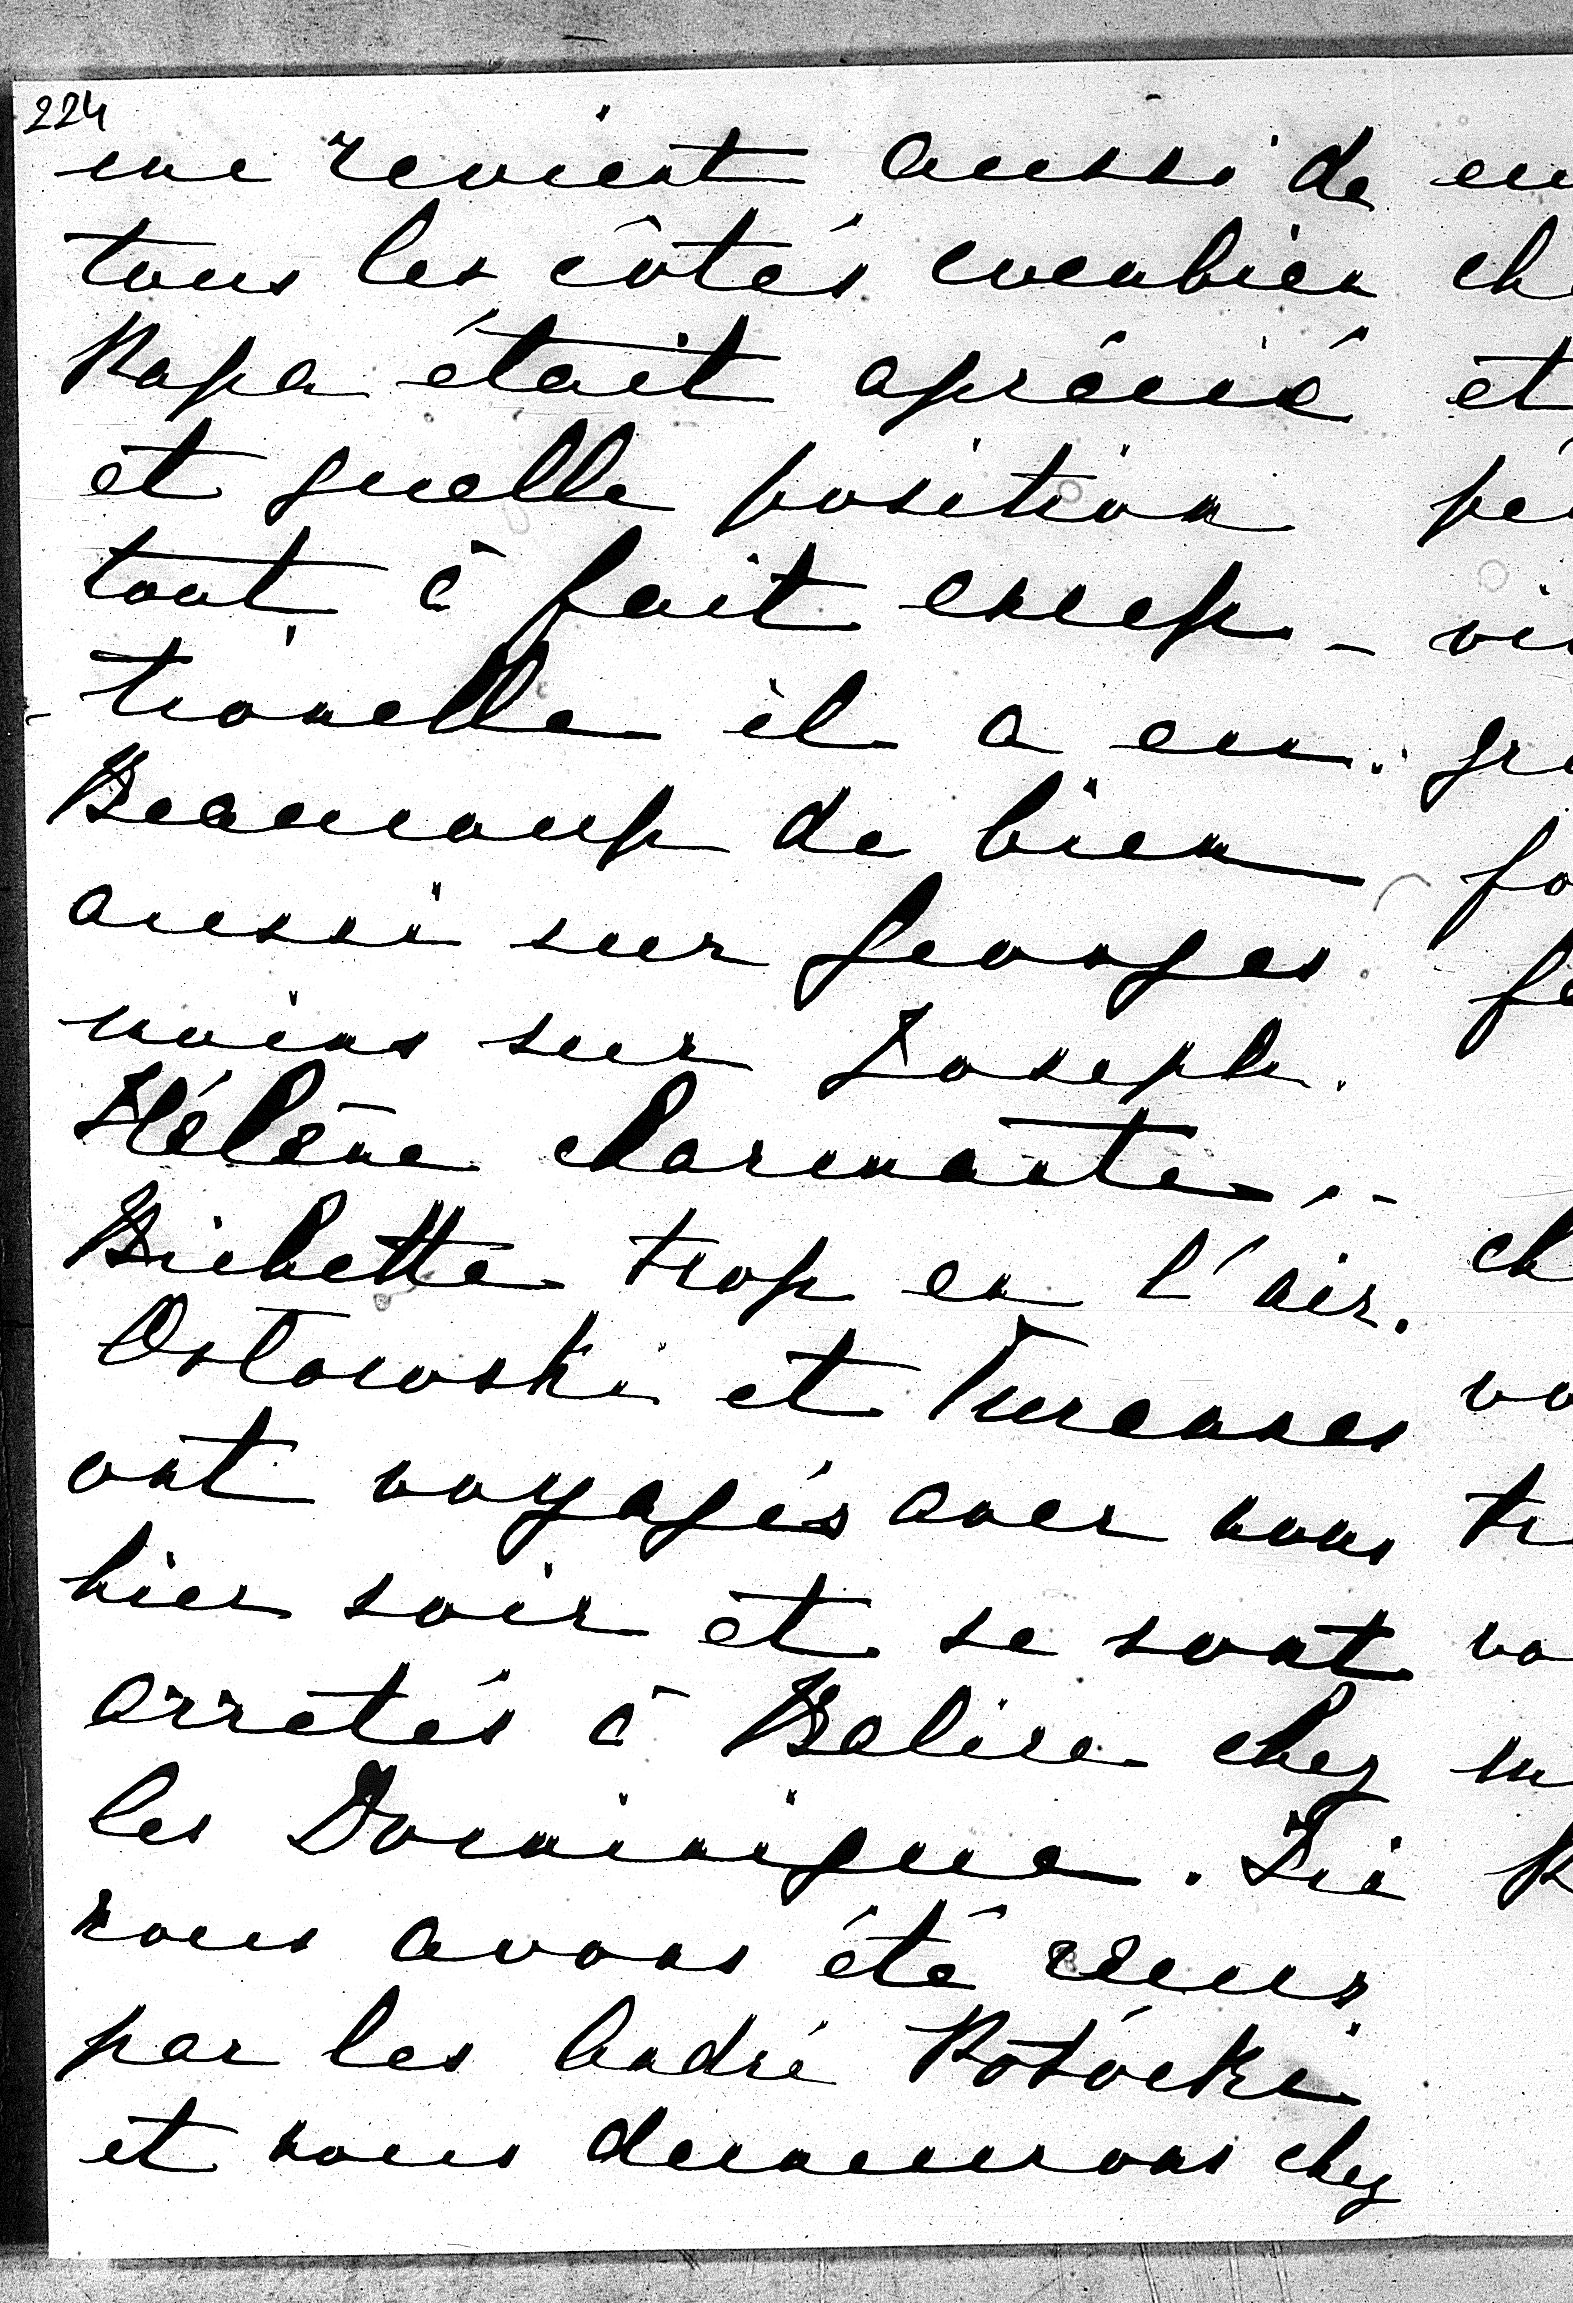 224
me revient aussi de
tous les côtés combien
Papa était aprécié
et quelle position
tout à fait excep-
-tionelle il a eu.
Beaucoup de bien
aussi sur Georges
moins sur Joseph.
Hélène charmante.-
Bichette trop en l'air.
Ostowski et Turennes
ont voyagés avec nous
hier soir et se sont
arrêtés à Balice chez
les Dominique. Ici
nous avons été réçus
par les André Potocki
et nous demeurons chez